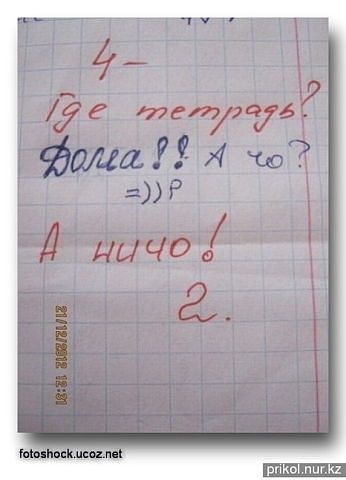 4-
Где тетрадь?
Дома!! А чо?
=))Р
А ничо!
2.
21/12/2012 12:31
fotoshock.ucoz.net
prikol.nur.kz